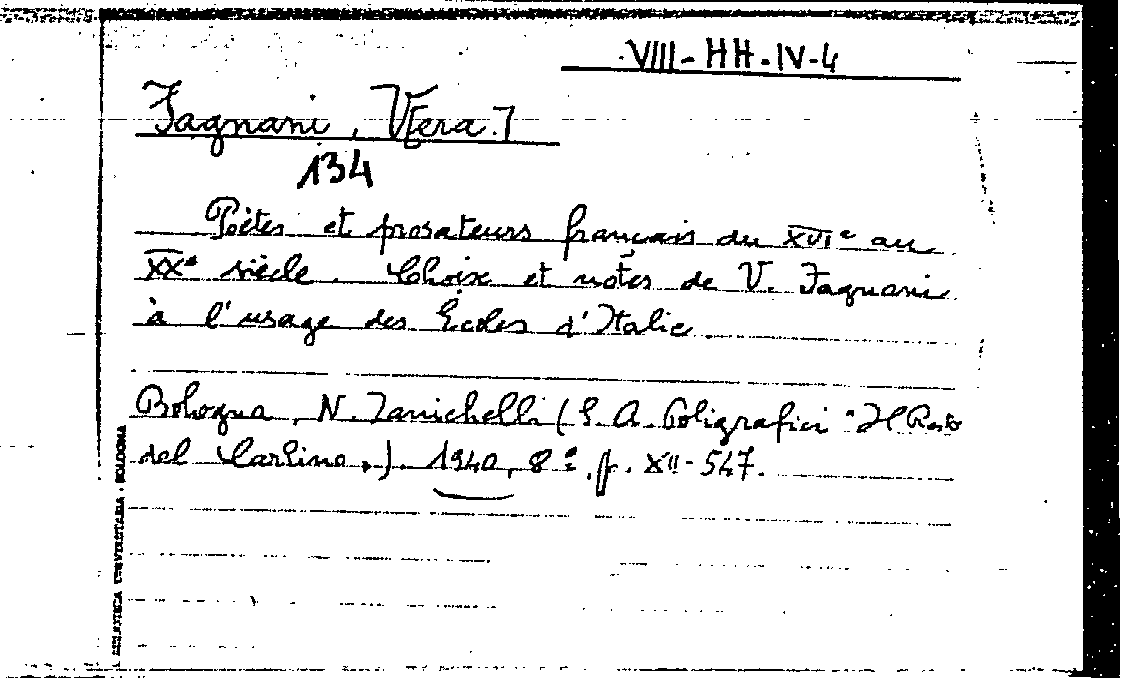 VIII-HH-IV-4
Fagnani, V[era.]
134
Poètes et prosateurs français du XVIe au
XXe siècle. Choix et notes de V. Fagnani
à l'usage des Écoles d'Italie
Bologna, N. Zanichelli (S. A. Poligrafici "Il Resto
del Carlino,,). 1940, 8º. p. XII-547.
BIBLIOTECA UNIVERSITARIA - BOLOGNA